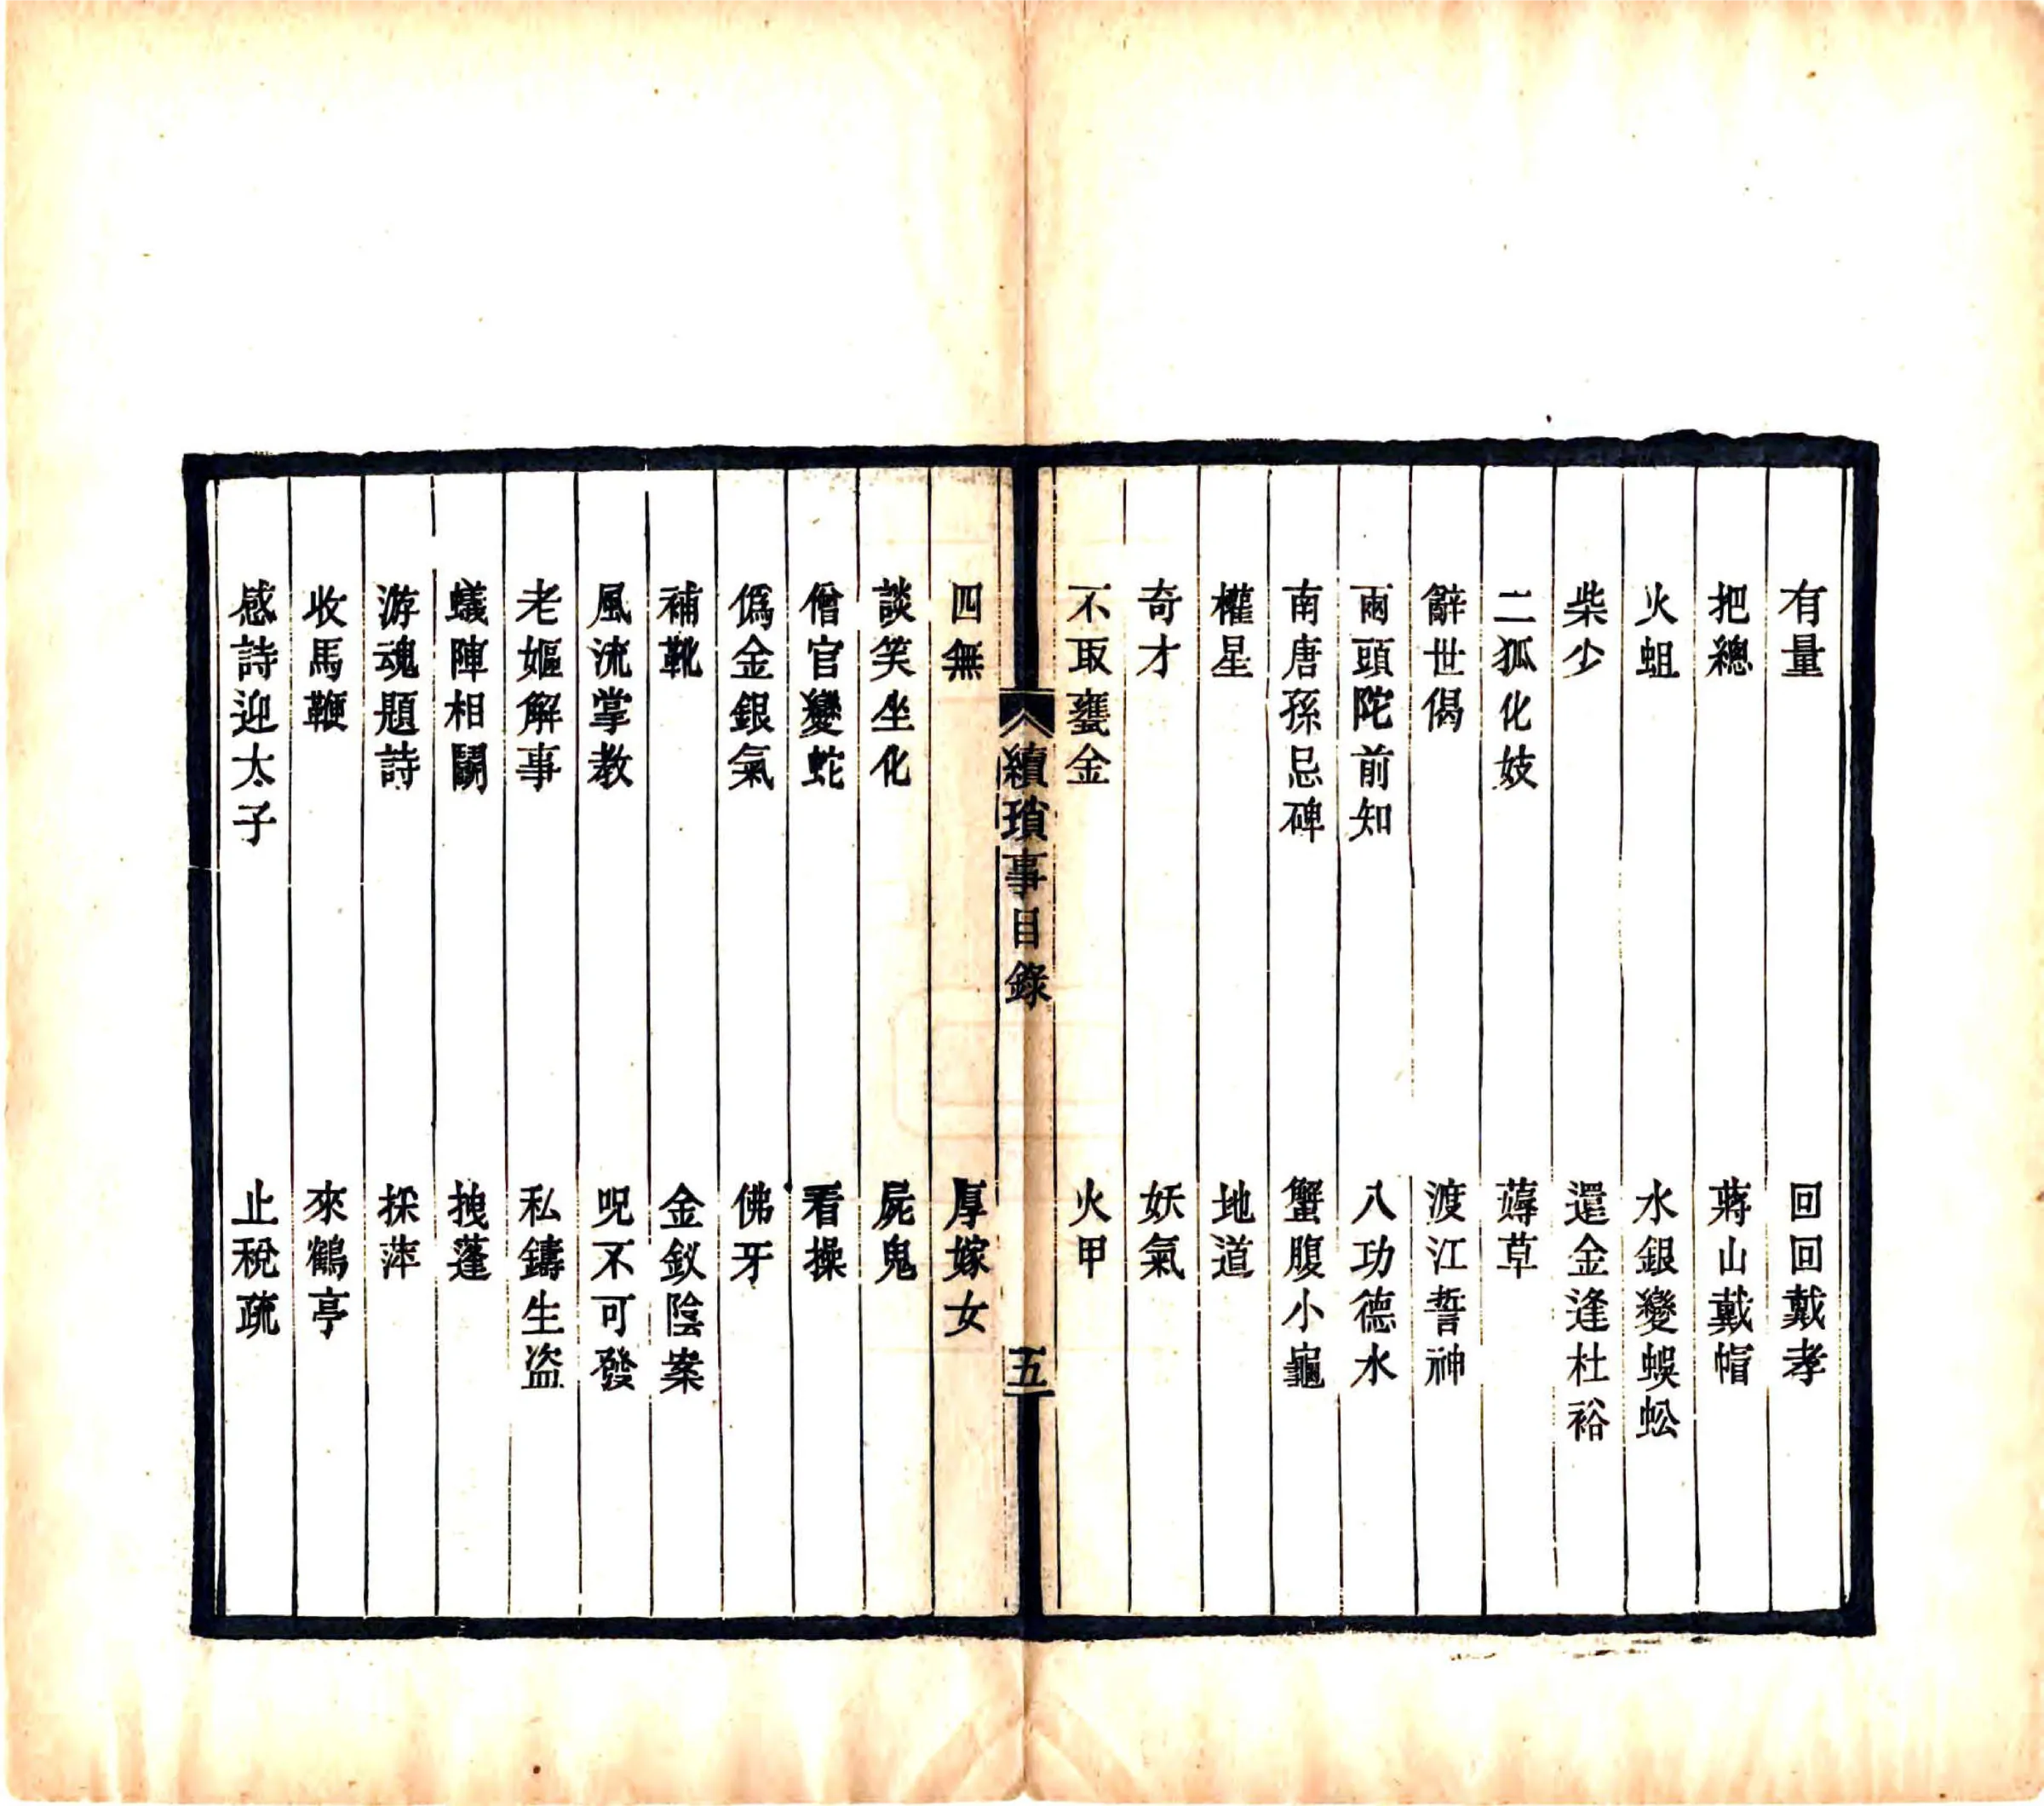 有量　回回戴孝
把總　蔣山戴帽
火蛆　水銀變蜈蚣
柴少　還金逢杜裕
二狐化妓　薅草
辭世偈　渡江誓神
兩頭陀前知　八功德水
南唐孫忌碑　蟹腹小龜
權星　地道
奇才　妖氣
不取甕金　火甲
續瑣事目錄　五
四無　厚嫁女
談笑坐化　屍鬼
僧官變蛇　看操
僞金銀氣　佛牙
補靴　金釵陰案
風流掌教　呪不可發
老嫗解事　私鑄生盜
蟻陣相鬭　拽蓬
游魂題詩　採萍
收馬鞭　來鶴亭
感詩迎太子　止稅疏